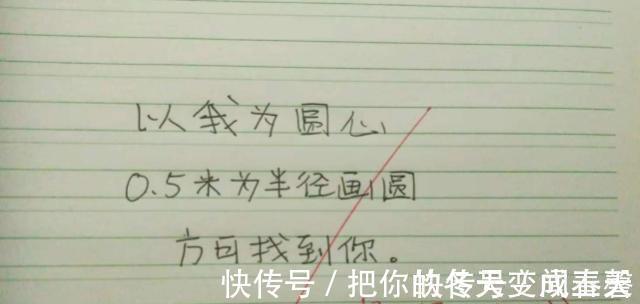 以我为圆心
0.5米为半径画圆
方可找到你。
快传号/把你的